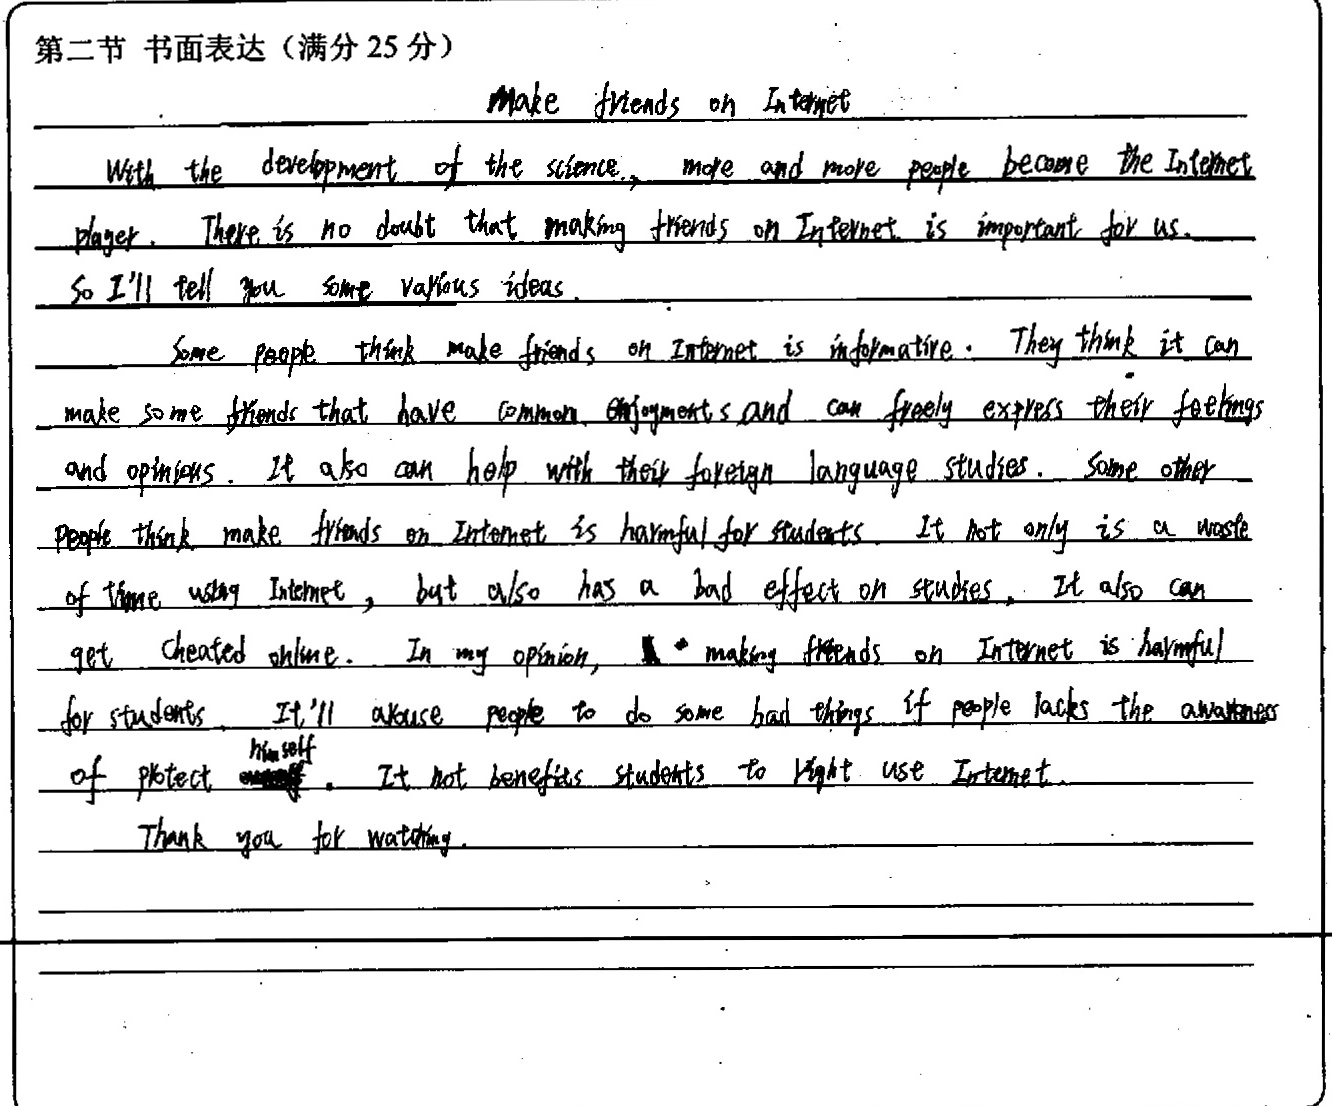 第二节 书面表达（满分 25 分）
Make friends on Internet
With the development of the science, more and more people become the Internet
player. There is no doubt that making friends on Internet is important for us.
So I'll tell you some various ideas.
Some people think make friends on Internet is informative. They think it can
make some friends that have common enjoyments and can freely express their feelings
and opinions. It also can help with their foreign language studies. Some other
people think make friends on Internet is harmful for students. It not only is a waste
of time using Internet, but also has a bad effect on studies. It also can
get cheated online. In my opinion, making friends on Internet is harmful
for students. It'll arouse people to do some bad things if people lacks the awareness
himself
of protect . It not benefits students to right use Internet.
Thank you for watching.